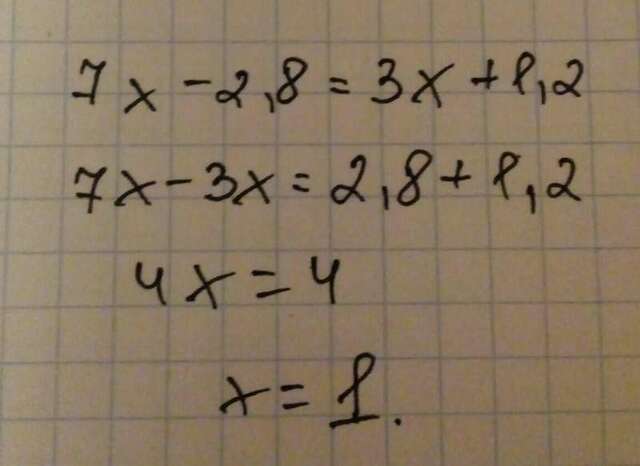 7x - 2,8 = 3x + 1,2
7x - 3x = 2,8 + 1,2
4x = 4
x = 1.